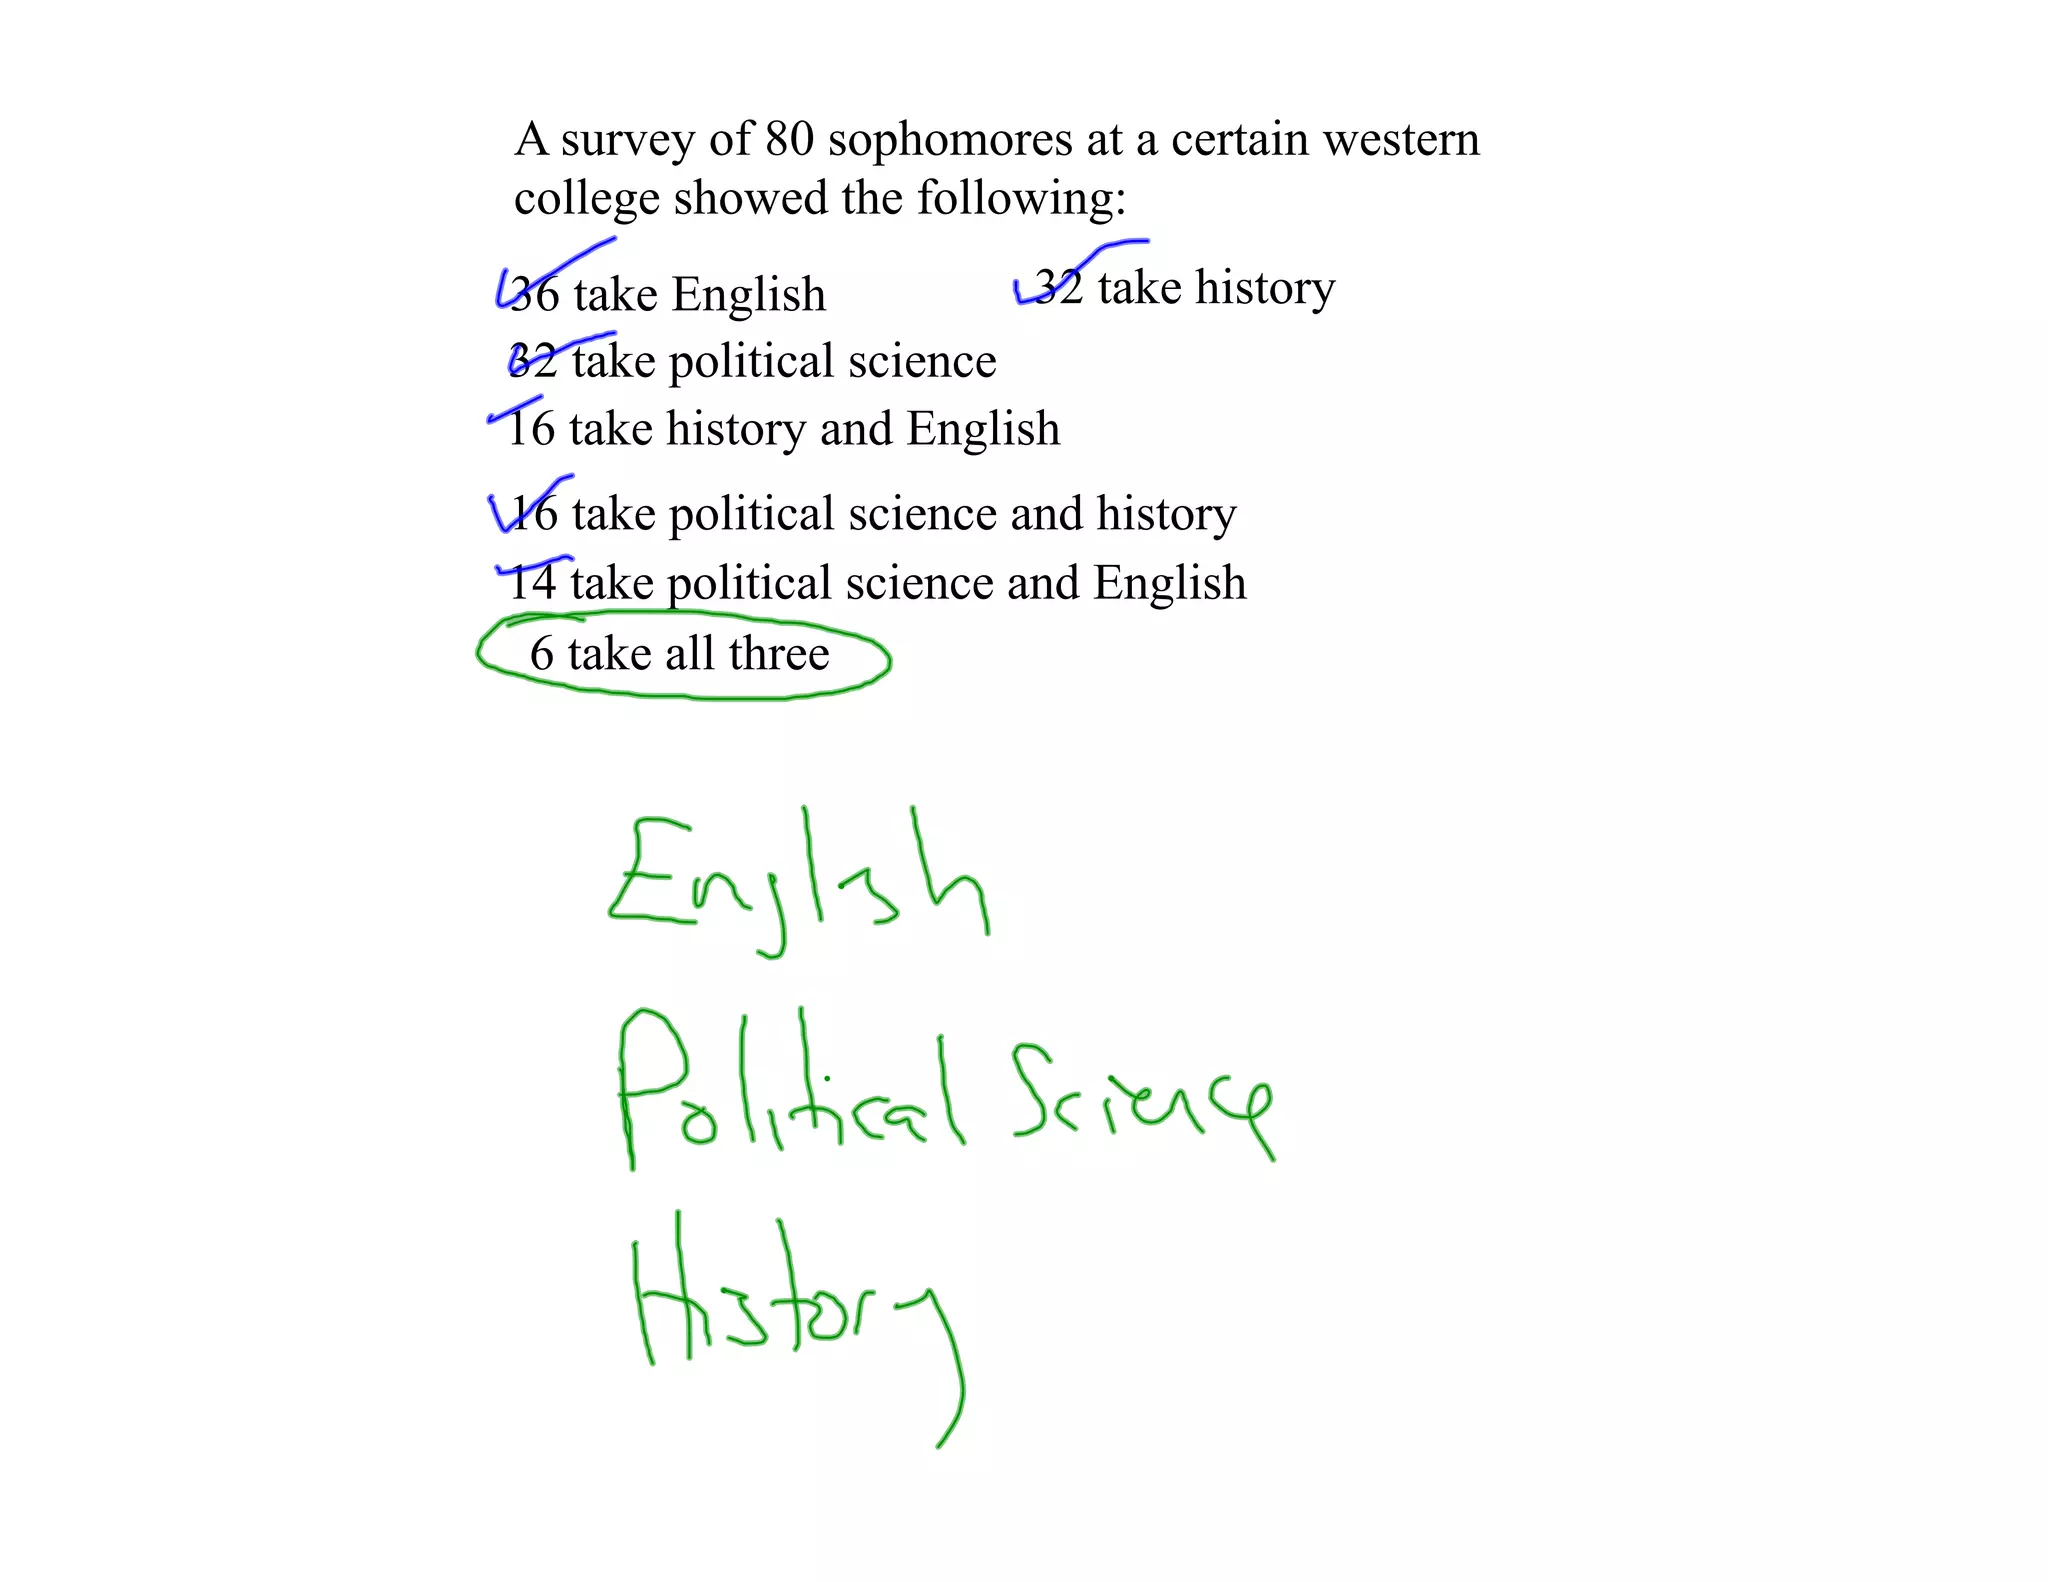 A survey of 80 sophomores at a certain western
college showed the following:
36 take English 32 take history
32 take political science
16 take history and English
16 take political science and history
14 take political science and English
6 take all three
English
Political Science
History